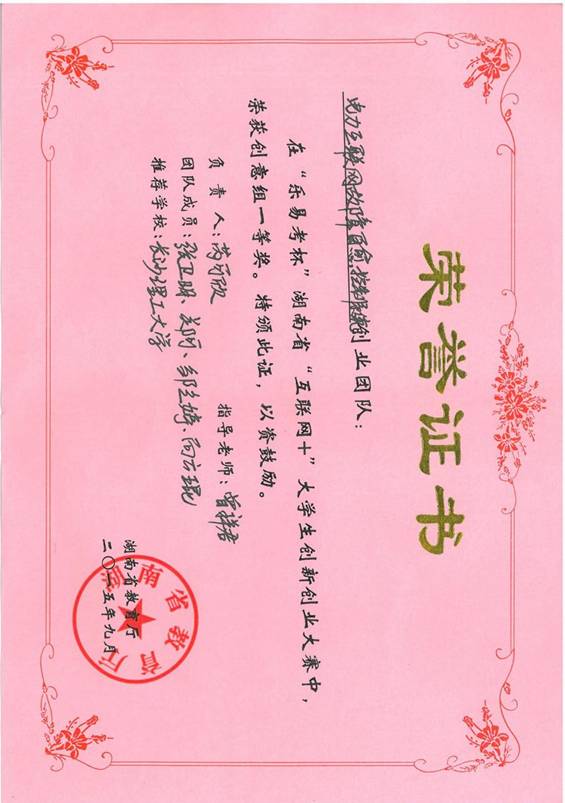 荣誉证书
电力互联网故障自愈控制系统创业团队：
在“乐易考杯”湖南省“互联网＋”大学生创新创业大赛中，
荣获创意组一等奖。特颁此证，以资鼓励。
负责人： 指导老师：曾祥君
团队成员：张卫明、
推荐学校：长沙理工大学
湖南省教育厅
二〇一五年九月
湖南省教育厅